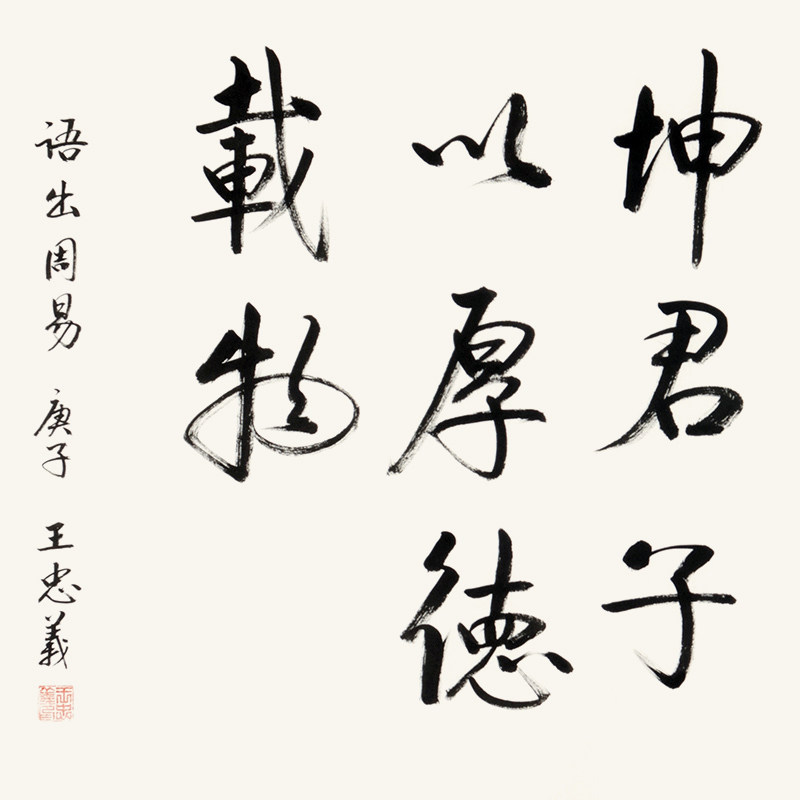 坤君子
以厚德
載物
语出周易 庚子 王忠義